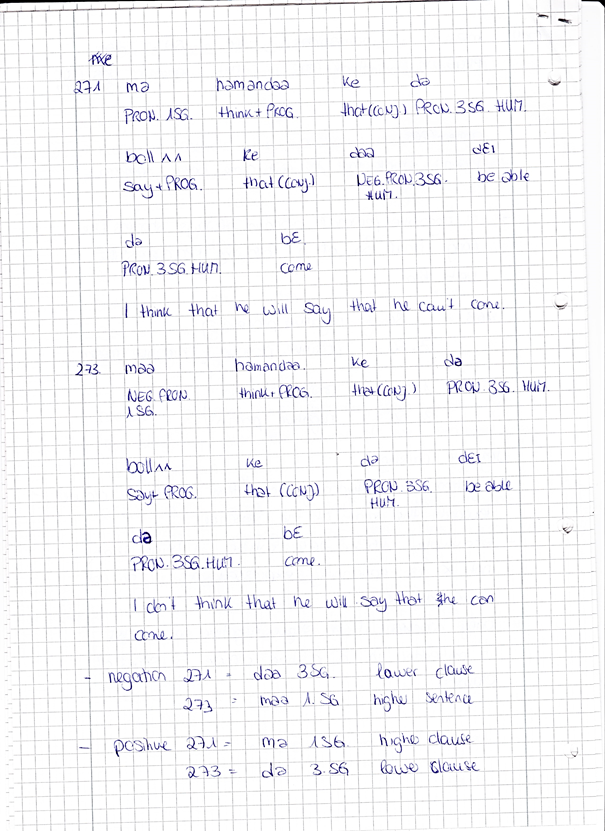 271 mə hamandaa ke də
PRON. 1SG. think+PROG. that(CONJ) PRON. 3SG. HUM.
boll ʌʌ ke dəə dɛɪ
say+PROG. that(CONJ.) NEG.PRON.3SG. be able
HUM.
də bɛ.
PRON. 3SG.HUM. come
I think that he will say that he can't come.
273. məə hamandaa. ke də
NEG. PRON. think+PROG. that(CONJ.) PRON. 3SG. HUM.
1SG.
bollʌʌ ke də dɛɪ
Say+PROG. that (CONJ) PRON 3SG. be able
HUM.
də bɛ
PRON. 3SG.HUM. come.
I don't think that he will say that he can
come.
- negation 271 = dəə 3SG. lower clause
273 = məə 1.SG higher sentence
- positive 271 = mə 1SG. higher clause
273 = də 3.SG lower clause